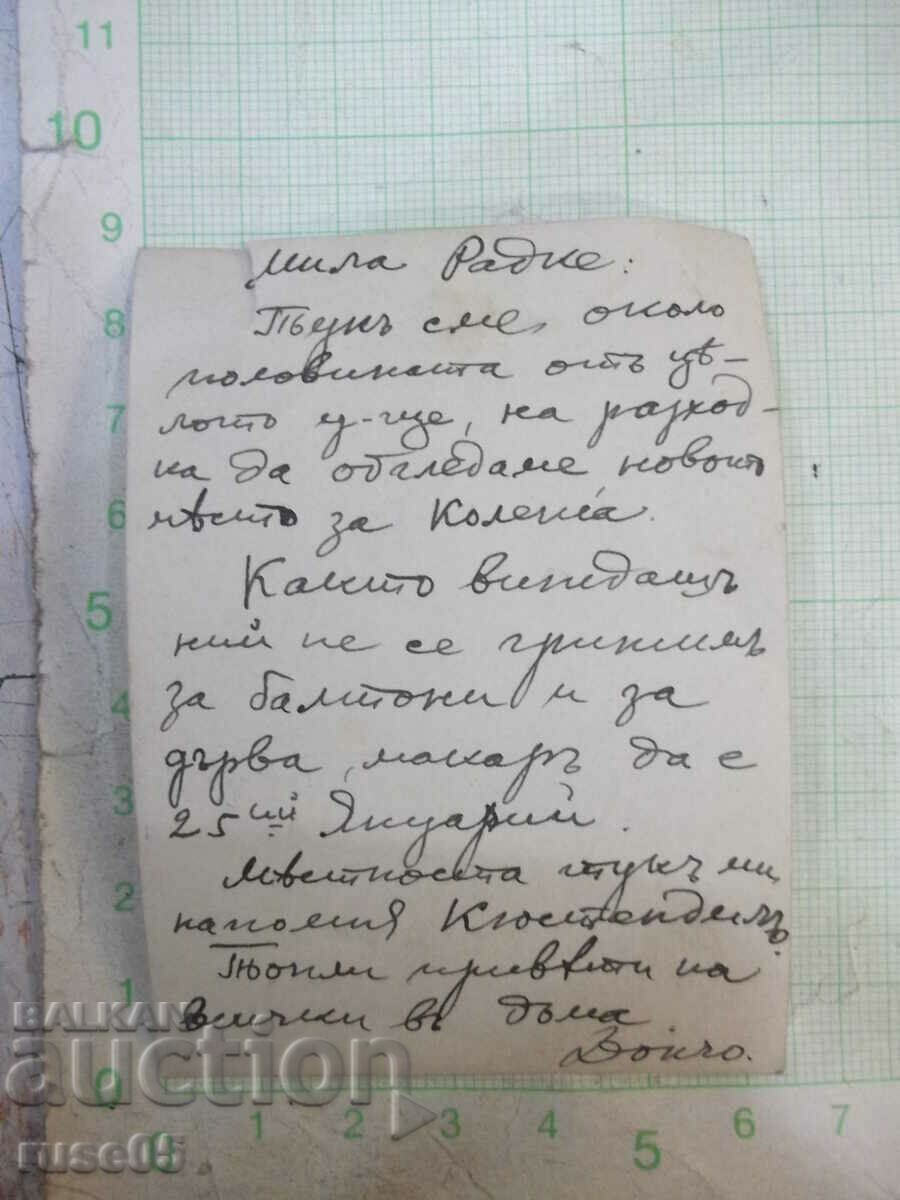 11
10
9
8
7
6
5
4
3
2
1
0
Мила Радке:
Тукъ сме, около
половината отъ цѣ-
лото у-ще, на разход-
ка да обгледаме новото
мѣсто за
Както виждашъ
ний не се грижимъ
за балтони и за
дърва, макаръ да е
25ий Януарий.
Мѣстността тукъ ми
напомня Кюстендилъ.
Топли привѣти на
всички въ дома
BALKAN
auction
ruse05
0 1 2 3 4 5 6 7